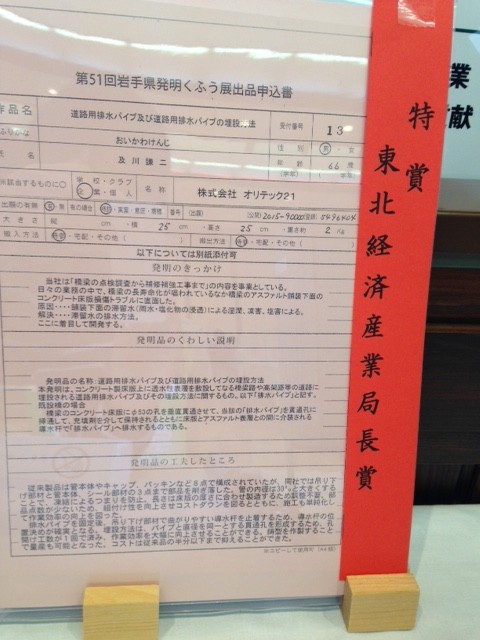 第51回岩手県発明くふう展出品申込書
作品名
道路用排水パイプ及び道路用排水パイプの埋設方法
受付番号
13
ふりがな
おいかわけんじ
性別
男・女
氏 名
及川謙二
年齢
66歳
(学年)
※該当するものに○
学校・クラブ
企業・個人
名称
株式会社 オリテック21
出願の有無
有・無
有の場合
特許・実案・意匠・商標
番号
(出願)
(公開)2015-90000(登録)5496404
大きさ
縦 cm・横 25 cm・高さ 25 cm・重さ約 2 kg
搬入方法
持参・宅配・その他( )
搬出方法
持参・宅配・その他( )
以下については別紙添付可
発明のきっかけ
当社は「橋梁の点検調査から補修補強工事まで」の内容を事業としている。
日々の業務の中で、橋梁の長寿命化が謳われているなか橋梁のアスファルト舗装下面の
コンクリート床版損傷トラブルに直面した。
原因・・・・舗装下面の滞留水(雨水・塩化物の浸透)による湿潤、凍害、塩害による。
解決・・・・滞留水の排水方法。
ここに着目して開発する。
発明品のくわしい説明
発明品の名称:道路用排水パイプ及び道路用排水パイプの埋設方法
本発明は、コンクリート製床版上に透水性表層を敷設してなる橋梁路や高架路等の道路に
埋設される道路用排水パイプ及びその埋設方法に関するもの。以下「排水パイプ」と記す。
既設橋の場合
橋梁のコンクリート床版にφ53の孔を垂直貫通させて、当該の「排水パイプ」を貫通孔に
挿通して、充填剤を介して保持されるとともに床版とアスファルト表層との間に介装される
導水杆で「排水パイプ」へ排水するものである。
発明品の工夫したところ
従来製品は管本体やキャップ、パッキンなど8点で構成されていたが、同社では吊り下
げ部材と管本体、シール部材の3点まで部品を削ぎ落した。管の内径は30%大きくする
ことで、凍結によるつまりを防止。
コストは従来品の半分以下まで抑えることができた。
※コピーして使用可(A4版)
特賞
東北経済産業局長賞
業
献